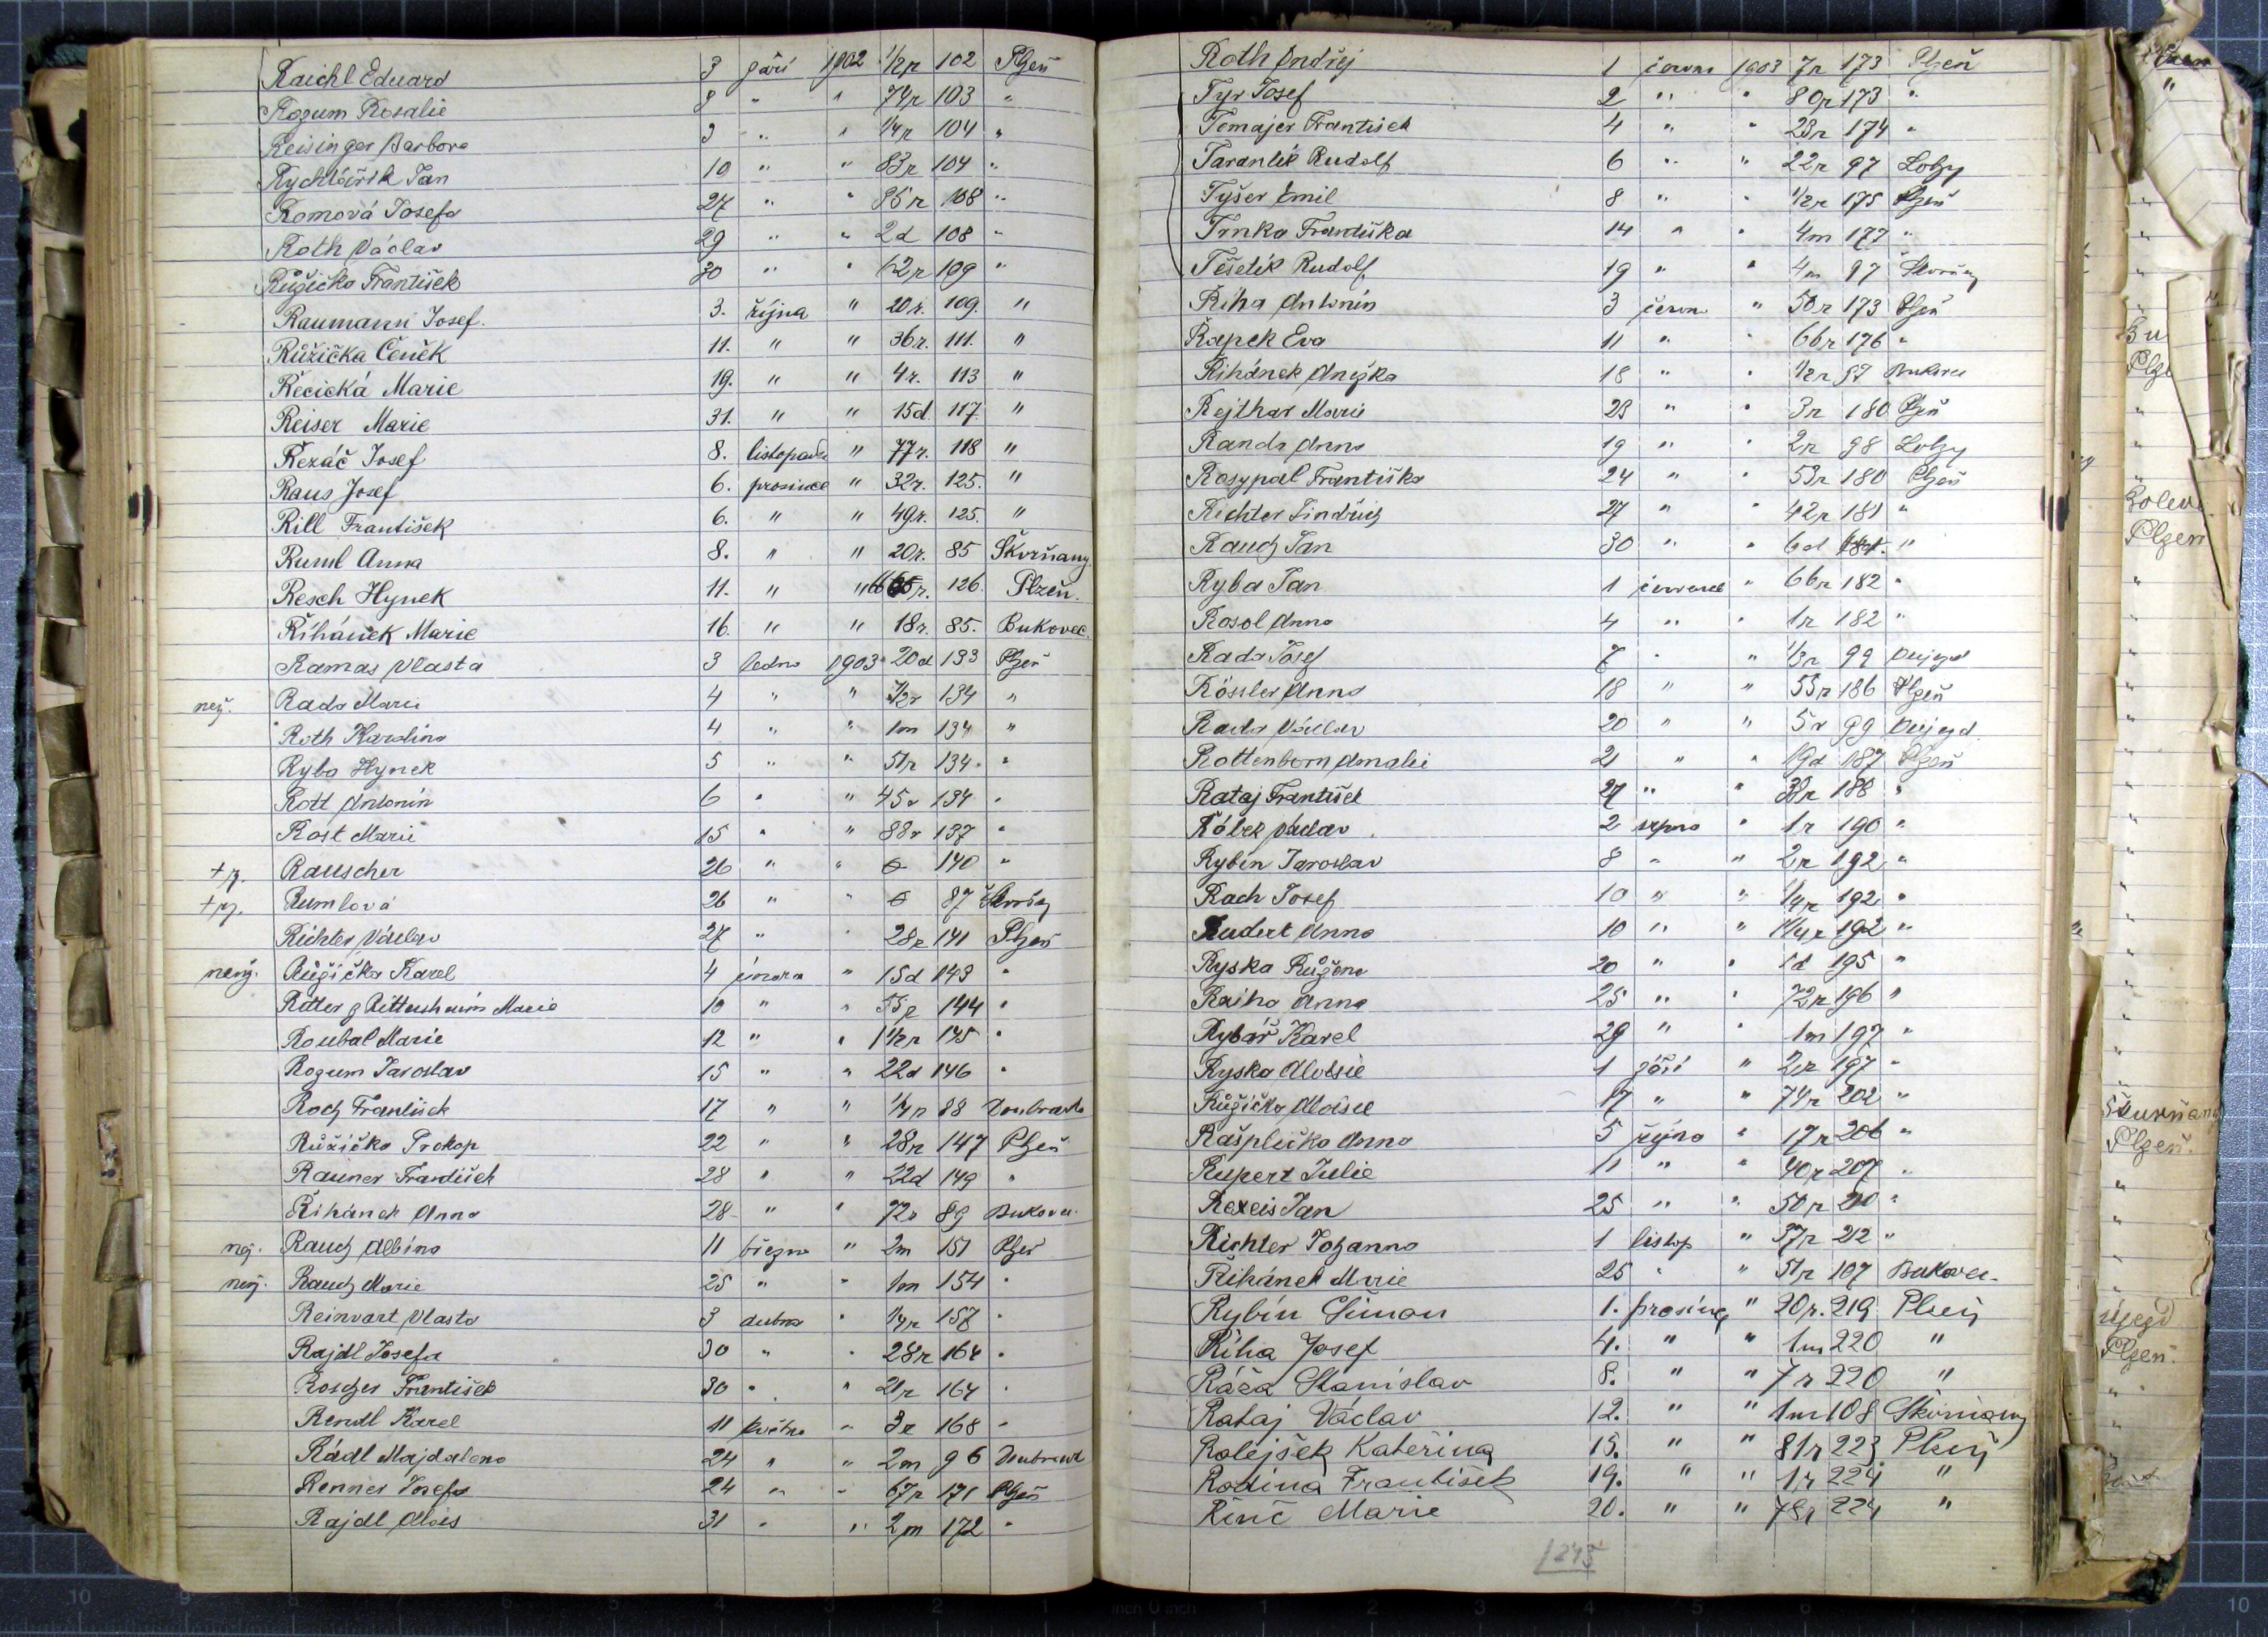 Raichl Eduard 3 září 1902 1/2 r 102 Plzeň
Rozum Rosalie 8 " " 74r 103 "
Reisinger Barbora 9 " " 1/4r 104 "
Rychtářík Jan 10 " " 83r 104 "
Romová Josefa 27 " " 86r 108 "
Roth Václav 29 " " 2d 108 "
Růžička František 30 " " 62r 109 "
Raumann Josef. 3. října " 20r. 109. "
Růžička Čeněk 11. " " 36r. 111. "
Řecická Marie 19. " " 4r. 113 "
Reiser Marie 31. " " 15d. 117. "
Řezáč Josef 8. listopadu " 77r. 118 "
Raus Josef 6. prosince " 32r. 125. "
Rill František 6. " " 49r. 125. "
Ruml Anna 8. " " 20r. 85 Skvrňany
Resch Hynek 11. " " 66r. 126. Plzeň.
Řihánek Marie 16. " " 18r. 85. Bukovec.
Ramas Vlasta 3 ledna 1903 20d 133 Plzeň
Rada Marie 4 " " 1/2r 134 "
Roth Karolina 4 " " 1m 134 "
Ryba Hynek 5 " " 51r 134 "
Rott Antonín 6 " " 45r 134 "
Rost Marie 15 " " 88r 137 "
Rauscher 26 " " 140 "
Rumlová 26 " " 87
Richter Václav 27 " " 28r 141 Plzeň
Růžička Karel 4 února " 15d 143 "
Ritter z Rittersheim Marie 10 " " 55r 144 "
Roubal Marie 12 " " 1 1/2r 145 "
Rozum Jaroslav 15 " " 22d 146 "
Roch František 17 " " 1/4r 88 Doubravka
Růžička Prokop 22 " " 28r 147 Plzeň
Rauner František 28 " " 22d 149 "
Řihánek Anna 28 " " 72r 89 Bukovec
Rauch Albína 11 března " 2m 151 Plzeň
Rauch Marie 25 " " 1m 154 "
Reinvart Vlasta 3 dubna " 1/4r 157 "
Rajdl Josefa 30 " " 28r 164 "
Roscher František 30 " " 21r 164 "
Rendl Karel 11 května " 3r 168 "
Rádl Majdalena 24 " " 2m 96 Doubravk
Renner Josefa 24 " " 67r 171 Plzeň
Rajdl Alois 31 " " 2m 172 "
Roth Ondřej 1 června 1903 7r 173 Plzeň
Tyr Josef 2 " " 80r 173 "
Tomajer František 4 " " 23r 174 "
Tarantík Rudolf 6 " " 22r 97 Lobzy
Tyšer Emil 8 " " 1/2r 175 Plzeň
Trnka Františka 14 " " 4m 177 "
Těšetík Rudolf 19 " " 4m 97 Skvrňany
Říha Antonín 3 červn " 50r 173 Plzeň
Řapek Eva 11 " " 66r 176 "
Řihánek Anežka 18 " " 1/2r 97 Bukovec
Rejthar Marie 23 " " 3r 180 Plzeň
Randa Anna 19 " " 2r 98 Lobzy
Rosypal Františka 24 " " 53r 180 Plzeň
Richter Jindřich 27 " " 42r 181 "
Rauch Jan 30 " " 6d 181. "
Ryba Jan 1 července " 66r 182 "
Rosol Anna 4 " " 1r 182 "
Rada Josef 7 " " 1/3r 99 Oujezd
Rössler Anna 18 " " 53r 186 Plzeň
Rada Václav 20 " " 5r 99 Oujezd
Rottenborn Amalie 21 " " 19d 187 Plzeň
Rataj František 27 " " 188 "
Rábek Václav 2 srpna " 1r 190 "
Rybín Jaroslav 8 " " 2r 192 "
Rach Josef 10 " " 1/4r 192 "
Rudert Anna 10 " " 192 "
Ryska Růžena 20 " " 1d 195 "
Raiha Anna 25 " " 72r 196 "
Rybář Karel 29 " " 1m 197 "
Ryska Aloisie 1 září " 2r 197 "
Růžička Aloisie 17 " " 74r 202 "
Rašplička Anna 5 října " 17r 206 "
Rupert Julie 11 " " 40r 207 "
Rexeis Jan 25 " " 50r 210 "
Richter Johanna 1 listop " 57r 212 "
Řihánek Marie 25 " " 51r 107 Bukovec
Rybín Šimon 1. prosince " 20r. 219 Plzeň
Říha Josef 4. " " 1m 220 "
Ráža Stanislav 8. " " 7r 220 "
Rataj Václav 12. " " 1m 108 Skvrňany
Rolejšek Kateřina 15. " " 81r 223 Plzeň
Rodina František 19. " " 1r 224 "
Řinč Marie 20. " " 78r 224 "
1245
Plzeň
Skvrňany
Plzeň.
Újezd
Plzeň.